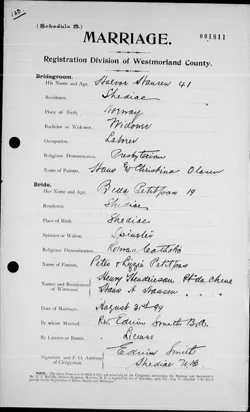 (Schedule B.)
001811
MARRIAGE.
Registration Division of Westmorland County.
Bridegroom.
His Name and Age, Halvor Hansen 41
Residence, Shediac
Place of Birth, Norway
Bachelor or Widower, Widower
Occupation, Laborer
Religious Denomination, Presbyterian
Name of Parents, Hans & Christina Olsen
Bride.
Her Name and Age, Bella Petitpas 19
Residence, Shediac
Place of Birth, Shediac
Spinster or Widow, Spinster
Religious Denomination, Roman Catholic
Name of Parents, Peter & Lizzie Petitpas
Names and Residences of Witnesses Henry Hendrickson Pt du Chene
Hans A Hansen
Date of Marriage, August 21st 99
By whom Married, Rev. Edwin Smith B.A.
By License or Banns, License
Signature and P. O. Address of Clergyman. Edwin Smith
Shediac N.B.